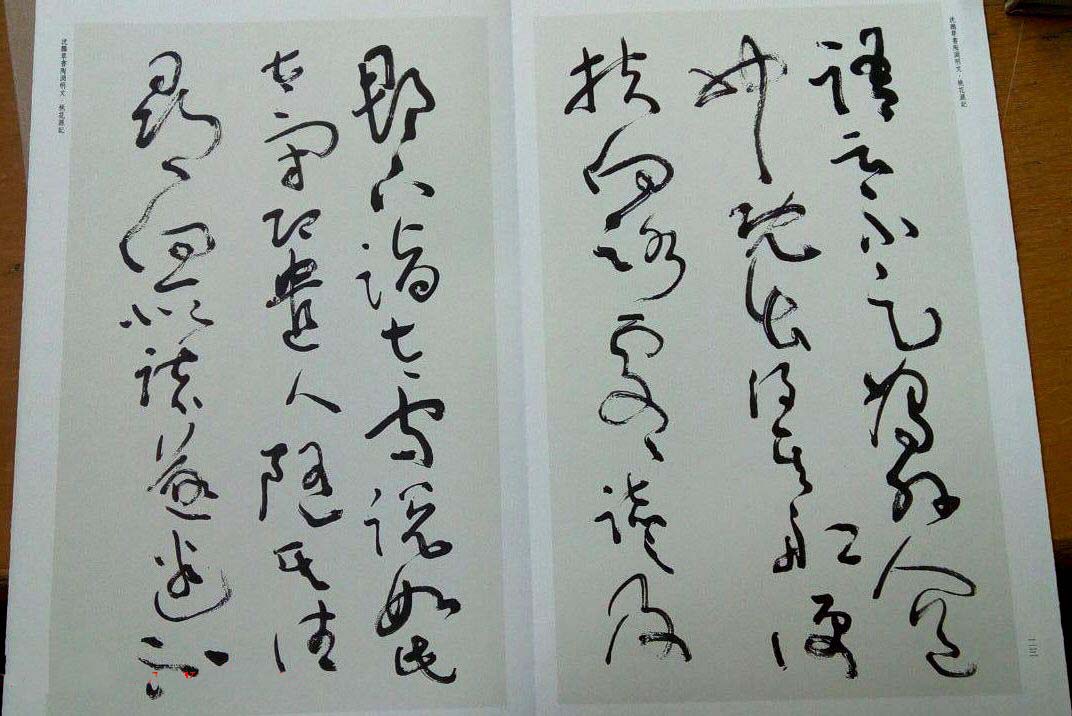 沈鵬草書陶淵明文·桃花源記
語云不足為外人道
也既出得其船便
扶向路處〻誌之及
二三
郡下詣太守說如此
太守即遣人隨其往
尋向所誌遂迷不
沈鵬草書陶淵明文·桃花源記